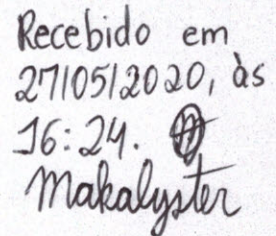 Recebido em
27/05/2020, às
16:24.
Makalyster